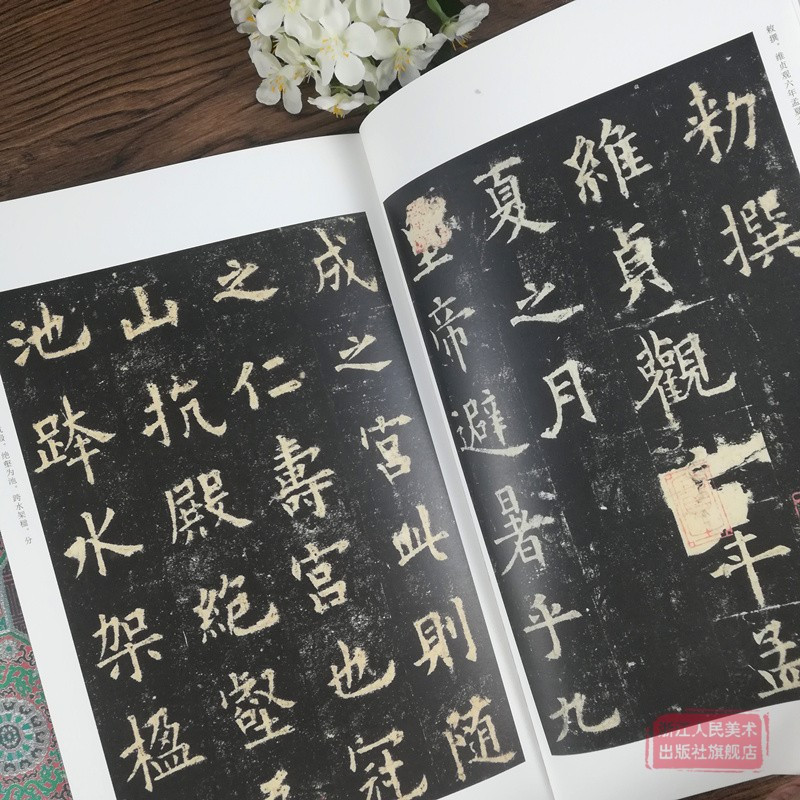 敕撰，维贞观六年孟夏
勅撰
維貞觀六年孟
夏之月
皇帝避暑乎九
成之宮此則隨
之仁壽宮也冠
山抗殿絕壑
池跨水架楹
殿，绝壑为池，跨水架楹，分
浙江人民美术
出版社旗舰店